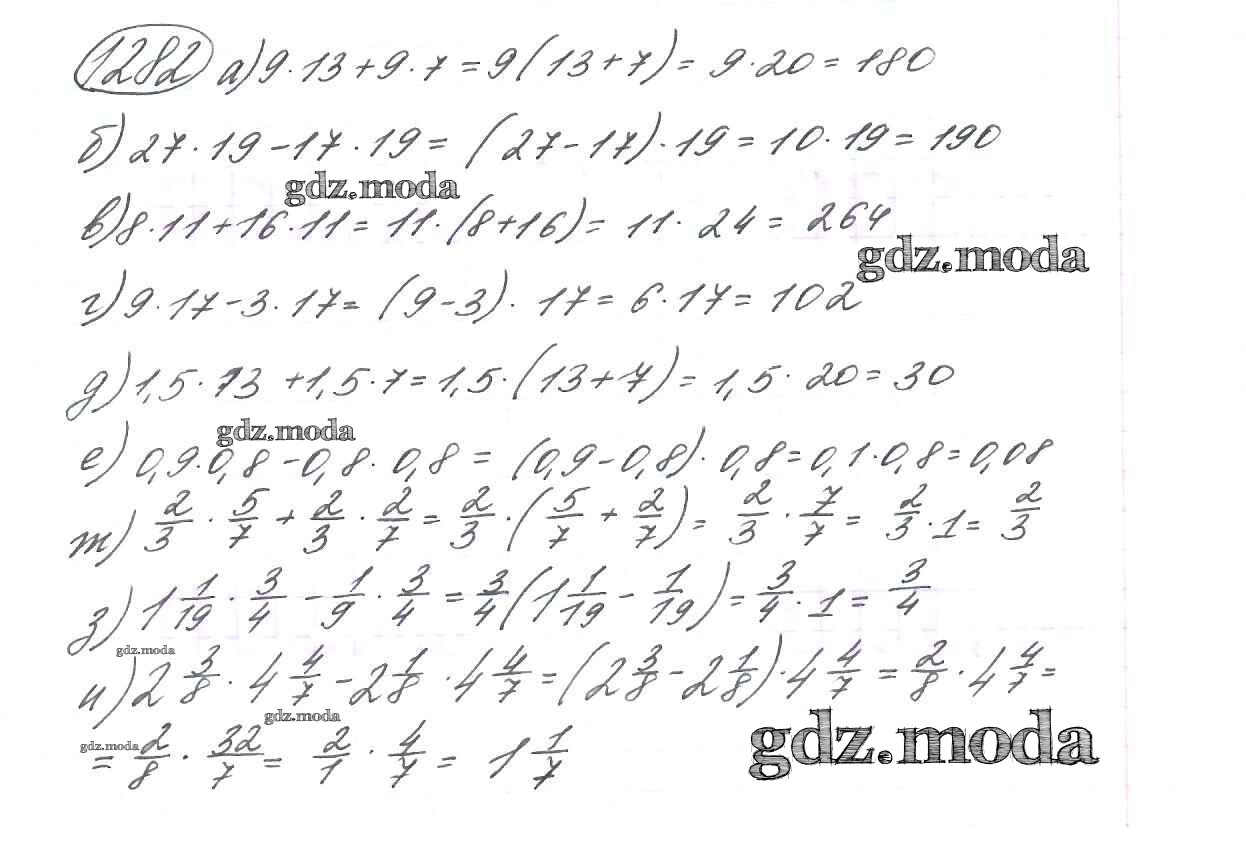 1282 а) 9·13+9·7=9(13+7)=9·20=180
б) 27·19-17·19=(27-17)·19=10·19=190
gdz.moda
в) 8·11+16·11=11·(8+16)=11·24=264
gdz.moda
г) 9·17-3·17=(9-3)·17=6·17=102
д) 1,5·13+1,5·7=1,5·(13+7)=1,5·20=30
gdz.moda
е) 0,9·0,8-0,8·0,8=(0,9-0,8)·0,8=0,1·0,8=0,08
ж) 2/3·5/7+2/3·2/7=2/3·(5/7+2/7)=2/3·7/7=2/3·1=2/3
з) 1 1/19·3/4-1/9·3/4=3/4(1 1/19-1/19)=3/4·1=3/4
gdz.moda
и) 2 3/8·4 4/7-2 1/8·4 4/7=(2 3/8-2 1/8)·4 4/7=2/8·4 4/7=
gdz.moda
gdz.moda
=2/8·32/7=2/1·4/7=1 1/7
gdz.moda